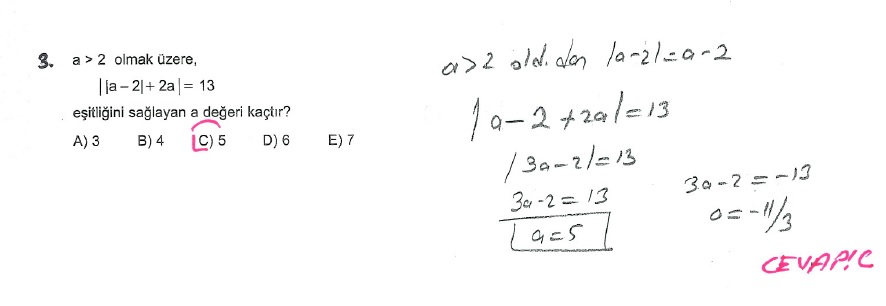 3. a > 2 olmak üzere,
||a – 2| + 2a| = 13
eşitliğini sağlayan a değeri kaçtır?
A) 3 B) 4 C) 5 D) 6 E) 7
a>2 old. dan |a-2|=a-2
|a-2+2a|=13
|3a-2|=13
3a-2=13
a=5
3a-2=-13
a=-11/3
CEVAP:C